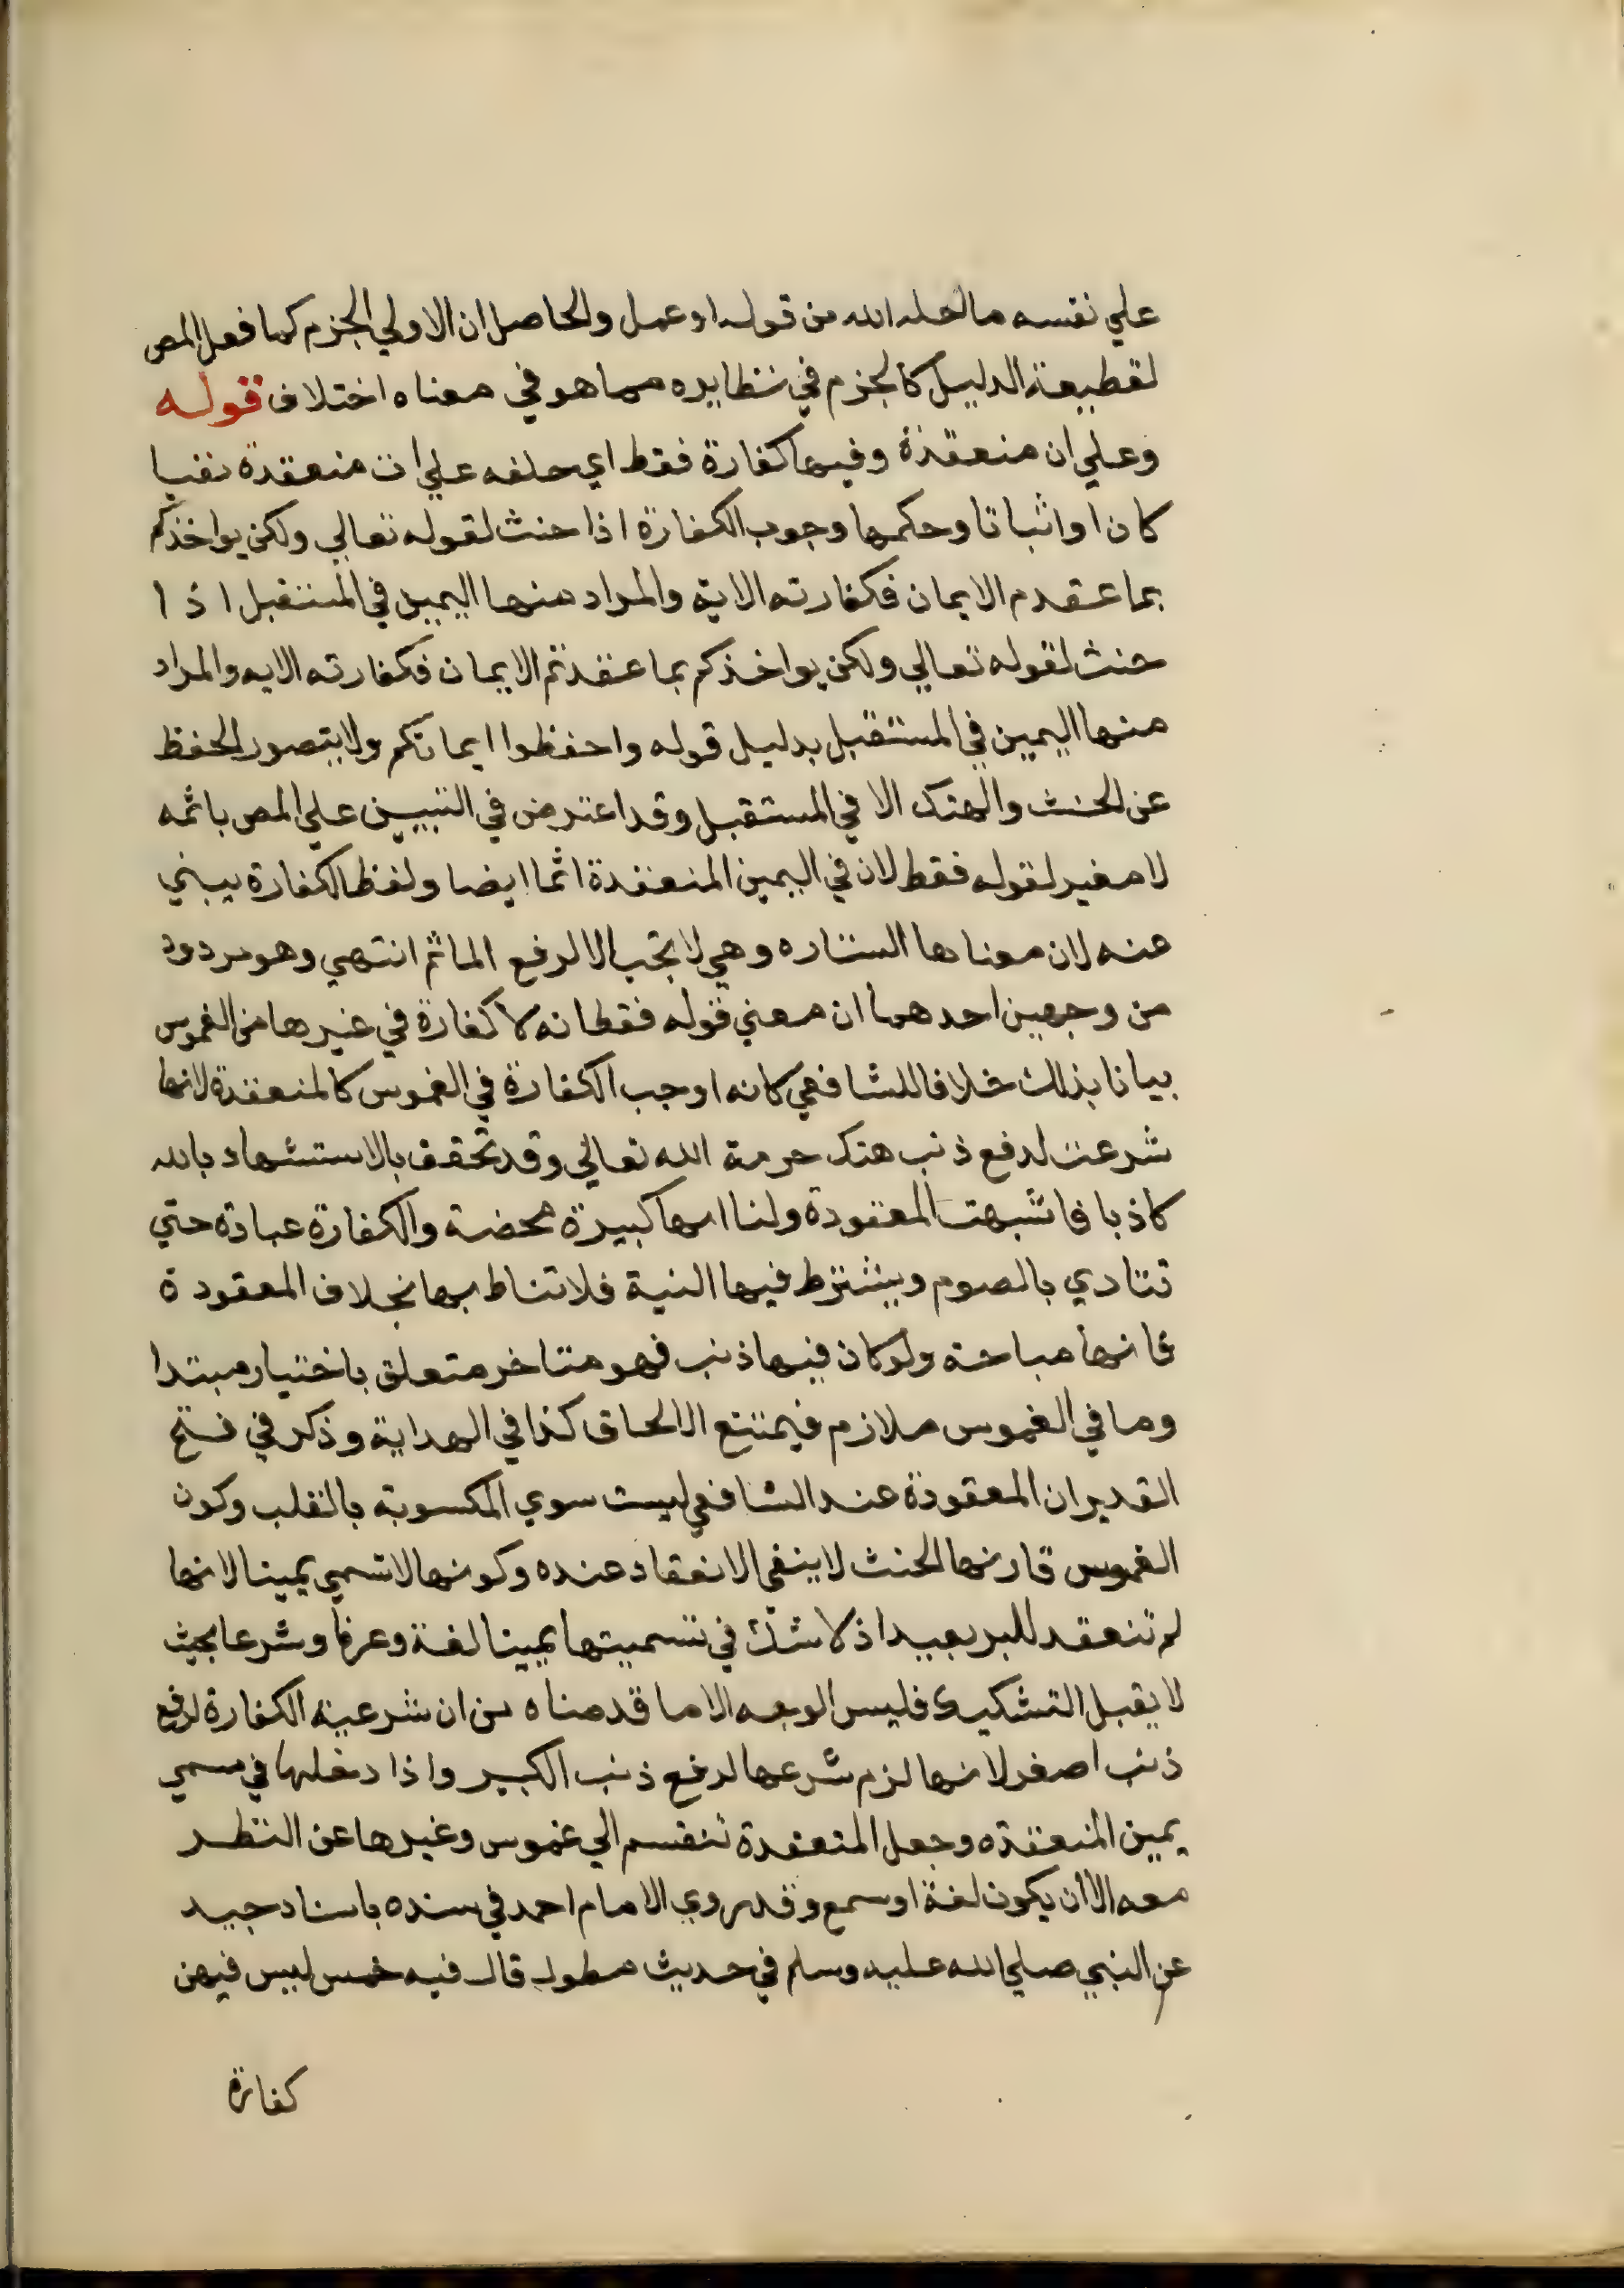 علي نفسه مالحله الله من قول او عمل والحاصل ان الاولي الجزم كما فعل المص
لقطيعة الدليل كالجزم في نظايره مما هو في معناه اختلاف قوله
وعلي ان منعقدة وفيها كفارة فقط اي حلفه علي ات منعقدة نفيا
كان او اثباتا وحكمها وجوب الكفارة اذا حنث لقوله تعالي ولكن يواخذكم
بما عقدم الايمان فكفارته الاية والمراد منها اليمين في المستقبل اذا
حنث لقوله تعالي ولكن يواخذكم بما عقدتم الايمان فكفارته الايه والمراد
منها اليمين في المستقبل بدليل قوله واحفظوا ايمانكم ولا يتصور الحفظ
عن الحنث والهتك الا في المستقبل وقد اعترض في التبيين علي المص باثمه
لا مغير لقوله فقط لان في اليمين المنعقدة اثما ايضا ولفظ الكفارة يبني
عنه لان معناها الستاره وهي لا تجب الا لرفع الماثم انتهي وهو مردود
من وجهين احدهما ان معني قوله فقط انه لا كفارة في غيرها من الغموس
بيانا بذلك خلافا للشافعي كانه اوجب الكفارة في الغموس كالمنعقدة لانها
شرعت لدفع ذنب هتك حرمة الله تعالي وقد تحقق بالاستشهاد بالله
كاذبا فاشبهت المعقودة ولنا انها كبيرة محضة والكفارة عبادة حتي
تتادي بالصوم ويشترط فيها النية فلا تناط بها بخلاف المعقودة
فانها مباحة ولو كان فيها ذنب فهو متاخر متعلق باختيار مبتدا
وما في الغموس ملازم فيمتنع الالحاق كذا في الهداية وذكر في فتح
القدير ان المعقودة عند الشافعي ليست سوي المكسوبة بالقلب وكون
الغموس قارنها الحنث لا ينفي الانعقاد عنده وكونها لا تسمي يمينا لانها
لم تنعقد للبر بعيد اذ لا شك في تسميتها يمينا لغة وعرفا وشرعا بحيث
لا يقبل التشكيك فليس الوجه الا ما قدمناه من ان شرعية الكفارة لرفع
ذنب اصغر لانها لزم شرعها لرفع ذنب الكبير واذا دخلها في مسمي
يمين المنعقده وجعل المنعقدة تنقسم الي غموس وغيرها عن النظر
معه الا ان يكون لغة او سمع وقد روي الامام احمد في سنده باسناد جيد
عن النبي صلي الله عليه وسلم في حديث مطول قال فيه خمس ليس فيهن
كفارة